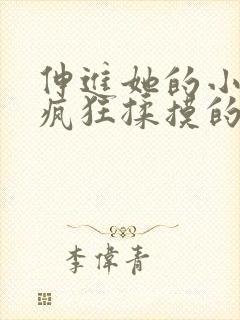 伸进她的小
疯狂揉摸的
李偉青